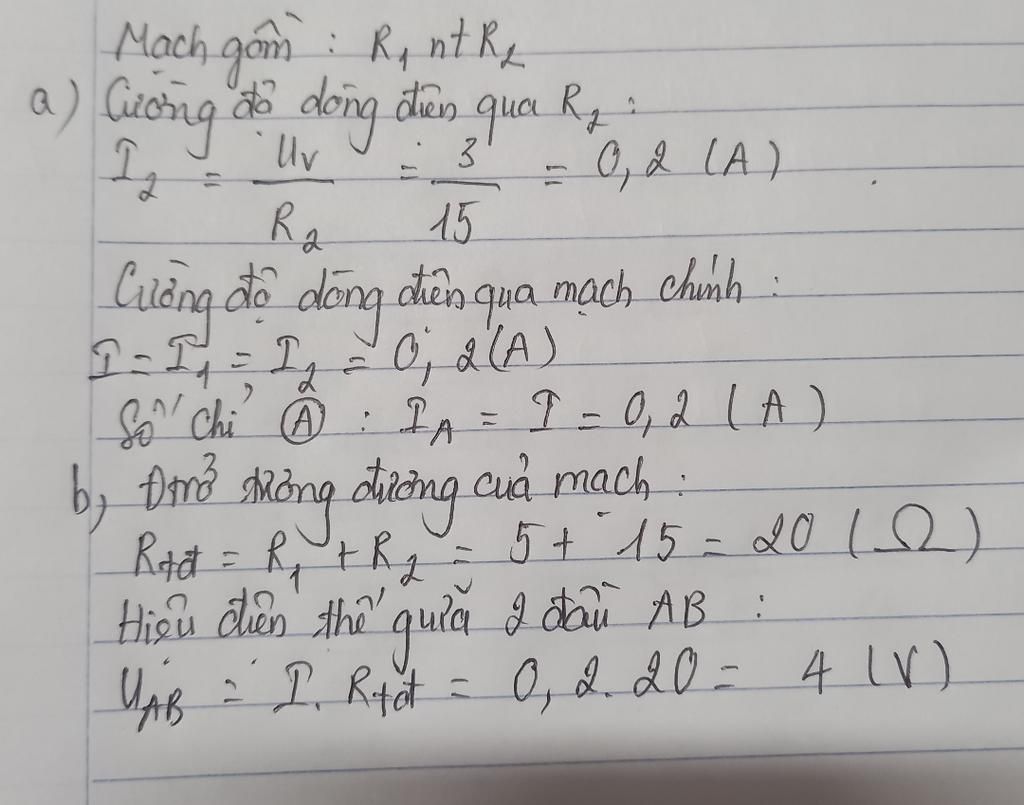 Mạch gồm : R₁ nt R₂
a) Cường độ dòng điện qua R₂ :
I₂ = Uv / R₂ = 3 / 15 = 0,2 (A)
Cường độ dòng điện qua mạch chính :
I = I₁ = I₂ = 0,2 (A)
Số chỉ Ⓐ : I_A = I = 0,2 (A)
b, Đtrở tương đương của mạch :
Rtđ = R₁ + R₂ = 5 + 15 = 20 (Ω)
Hiệu điện thế giữa 2 đầu AB :
U_AB = I. Rtđ = 0,2. 20 = 4 (V)